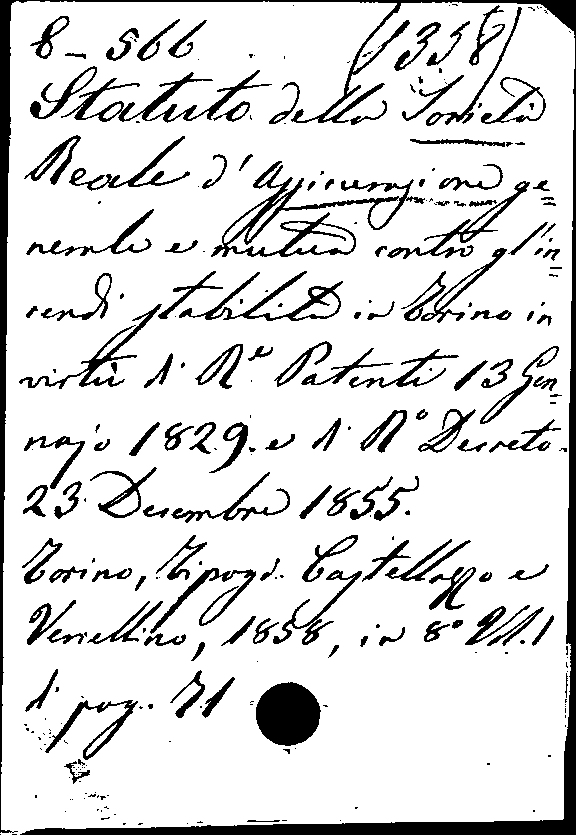 8-566 (1358)
Statuto della Società
Reale d'Assicurazione ge=
nerale e mutua contro gl'in=
cendi stabilita in Torino in
virtù di R.e Patenti 13 Gen=
najo 1829. e di R.o Decreto
23 Decembre 1855.
Torino, Tipogr. Castellazzo e
Vercellino, 1858, in 8° Vol. 1
di pag. 71